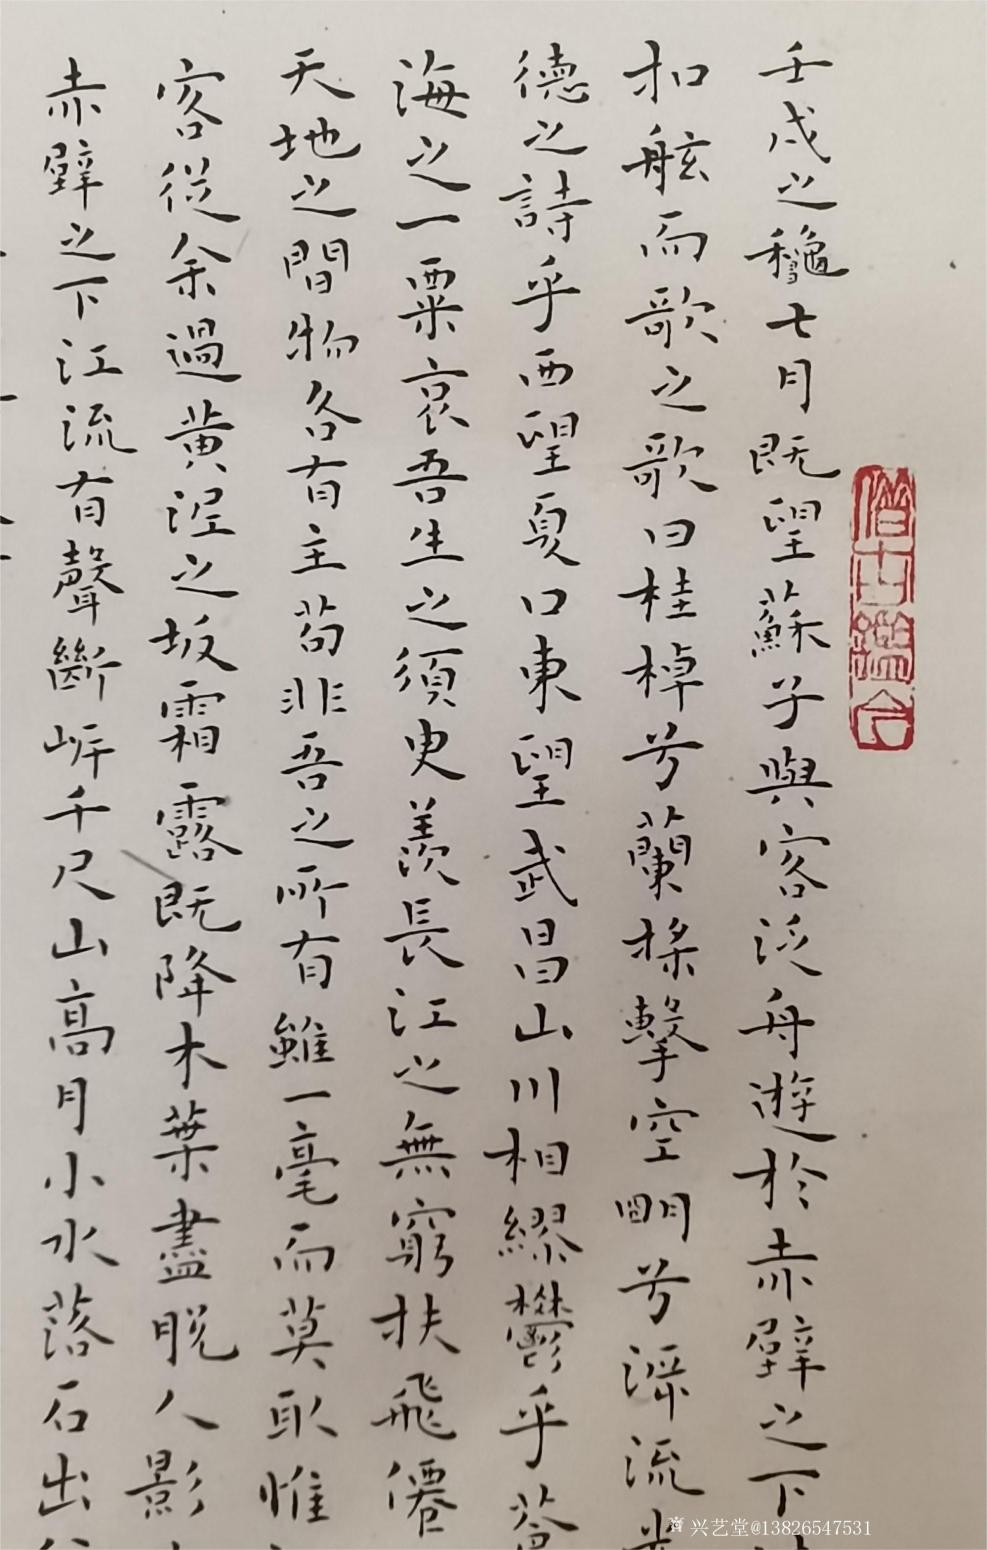 壬戌之龝七月既望蘇子與客泛舟遊於赤壁之下
扣舷而歌之歌曰桂棹兮蘭槳擊空明兮泝流
德之詩乎西望夏口東望武昌山川相繆鬱乎蒼
海之一粟哀吾生之須臾羨長江之無窮挾飛僊
天地之間物各有主苟非吾之所有雖一毫而莫取惟
客從余過黃泥之坂霜露既降木葉盡脫人影
赤壁之下江流有聲斷岸千尺山高月小水落石出
兴艺堂@13826547531